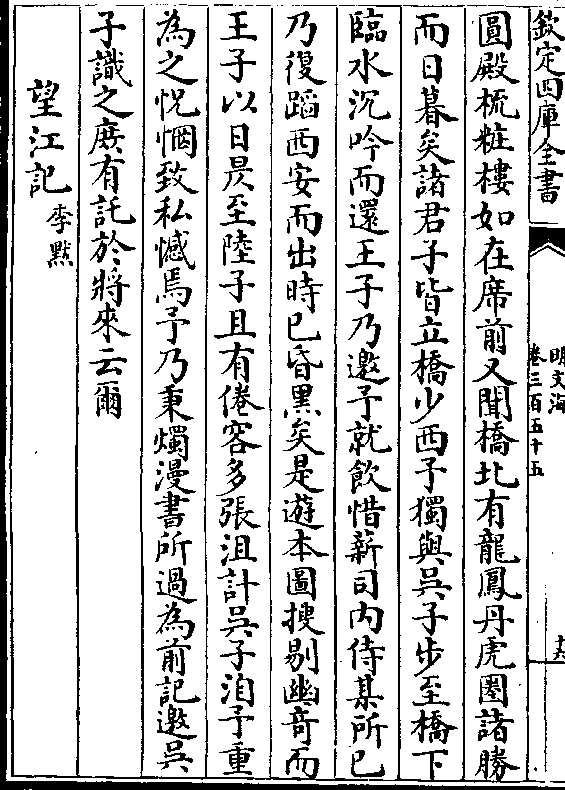 欽定四庫全書
明文海
卷三百五十五
十六
圓殿梳粧樓如在席前又聞橋北有龍鳳丹虎圈諸勝
而日暮矣諸君子皆立橋少西予獨與吳子步至橋下
臨水沉吟而還王子乃邀予就飲惜薪司内侍某所已
乃復蹈西安而出時已昏黑矣是遊本圖搜剔幽竒而
王子以日昃至陸子且有倦客多張沮計吳子洎予重
為之怳惘致私憾焉予乃秉燭漫書所過為前記邀吳
子識之庻有託於將來云爾
望江記 李黙